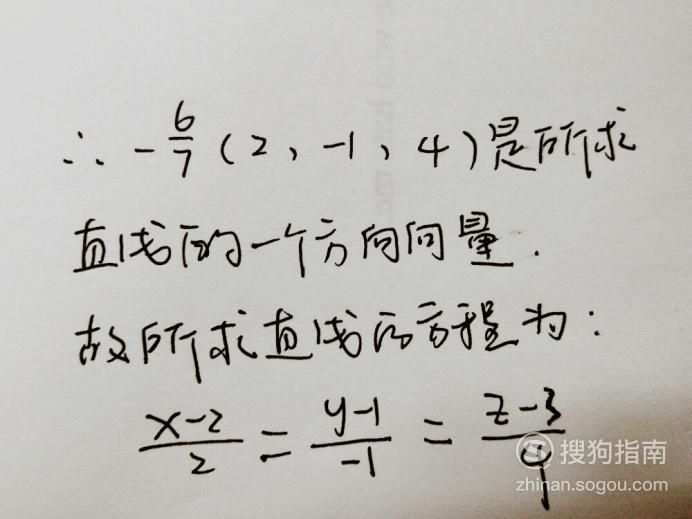 ∴ -6/7 (2, -1, 4) 是所求
直线的一个方向向量.
故所求直线的方程为:
(x-2)/2 = (y-1)/-1 = (z-3)/4
搜狗指南
zhinan.sogou.com